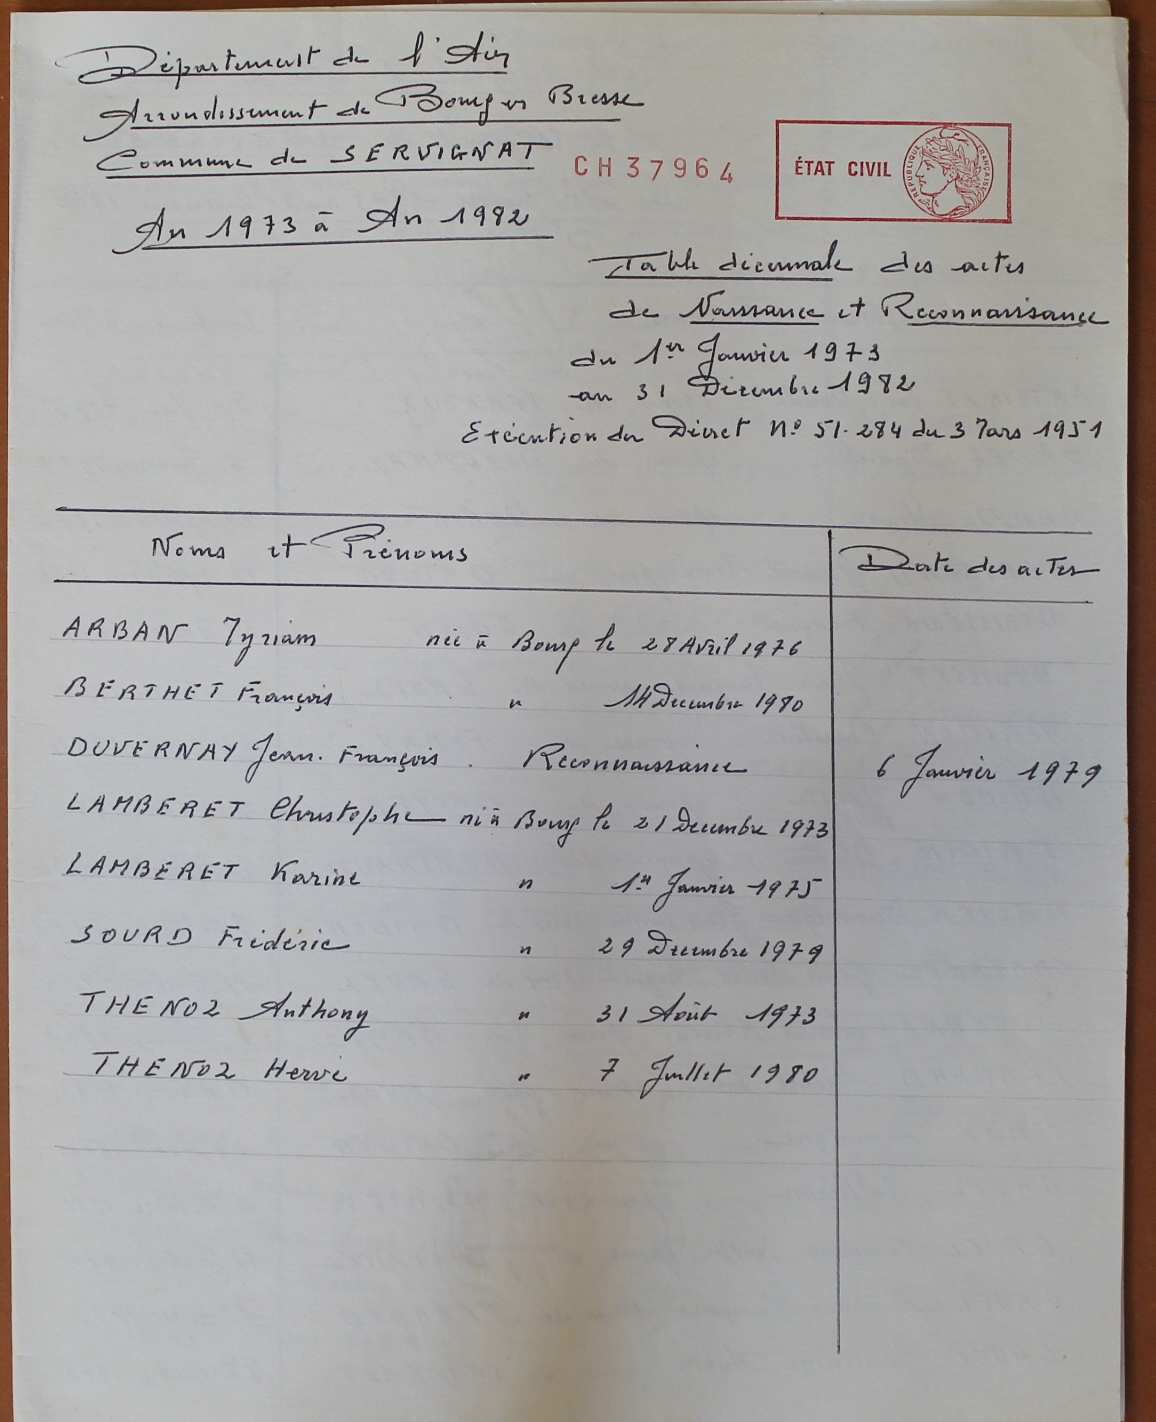 Département de l'Ain
Arrondissement de Bourg en Bresse
Commune de SERVIGNAT
CH37964
ÉTAT CIVIL
RÉPUBLIQUE FRANÇAISE
An 1973 à An 1982
Table décennale des actes
de Naissance et Reconnaissance
du 1er Janvier 1973
au 31 Décembre 1982
Exécution du Décret N° 51.284 du 3 Mars 1951
Noms et Prénoms
Date des actes
ARBAN Myriam née à Bourg le 28 Avril 1976
BERTHET François " 14 Decembre 1980
DUVERNAY Jean-François. Reconnaissance 6 Janvier 1979
LAMBERET Christophe né à Bourg le 21 Decembre 1973
LAMBERET Karine " 1er Janvier 1975
SOURD Frédéric " 29 Decembre 1979
THENOZ Anthony " 31 Août 1973
THENOZ Hervé " 7 Juillet 1980